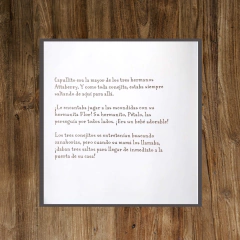 Copullito era la mayor de los tres hermanos
Attaberry. Y como toda conejita, estaba siempre
saltando de aquí para allá.
¡Le encantaba jugar a las escondidas con su
hermanita Flor! Su hermanito, Pétalo, las
perseguía por todos lados. ¡Era un bebé adorable!
Los tres conejitos se entretenían buscando
zanahorias, pero cuando su mamá los llamaba,
¡daban tres saltos para llegar de inmediato a la
puerta de su casa!